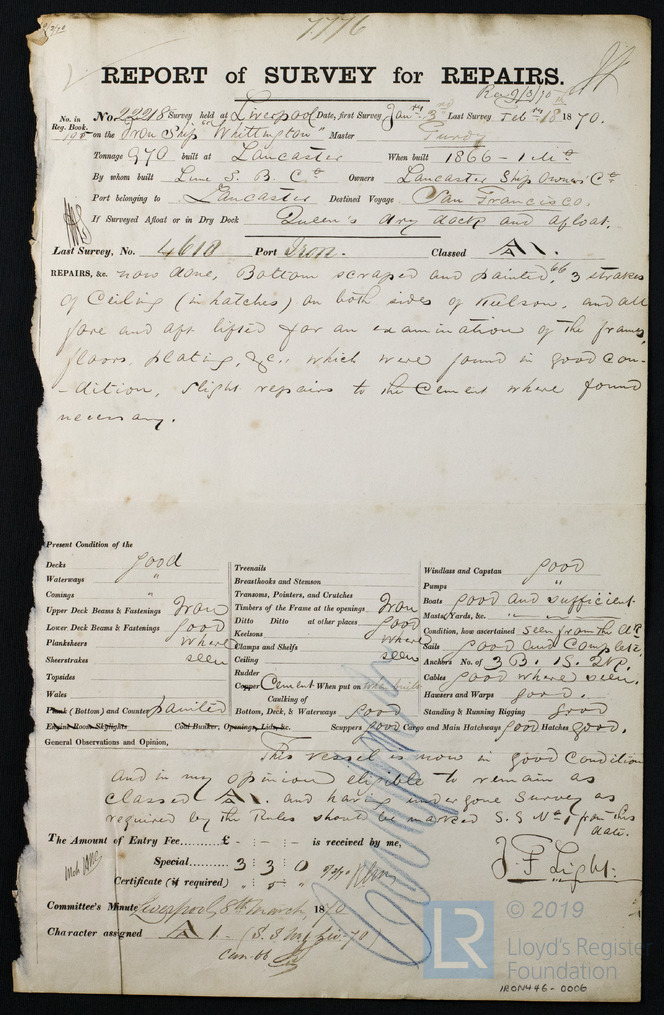 7776
REPORT of SURVEY for REPAIRS.
Rec 9/3/70
No. in Reg. Book.
No. 22218 Survey held at Liverpool Date, first Survey Jany 3rd Last Survey Feb 18 1870.
on the Iron Ship "Whittington" Master Purdy
Tonnage 970 built at Lancaster When built 1866 -
By whom built Lune S. B. Co Owners Lancaster Ship Owners Co
Port belonging to Lancaster Destined Voyage San Francisco.
If Surveyed Afloat or in Dry Dock Queen's dry dock and afloat.
Last Survey, No. 4618 Port Iron. Classed A 1.
REPAIRS, &c. now done, Bottom scraped and painted, 3 strakes
of Ceiling (in hatches) on both sides of Keelson, and all
fore and aft lifted for an examination of the frames,
floors, plating, &c., which were found in good con-
-dition, slight repairs to the Cement where found
necessary.
Present Condition of the
Decks good
Waterways "
Comings "
Upper Deck Beams & Fastenings Iron
Lower Deck Beams & Fastenings good
Planksheers where
Sheerstrakes seen
Topsides
Wales
Plank (Bottom) and Counter painted
Engine Room Skylights Coal Bunker, Openings, Lids, &c.
Treenails
Breasthooks and Stemson
Transoms, Pointers, and Crutches
Timbers of the Frame at the openings Iron
Ditto Ditto at other places good
Keelsons where
Clamps and Shelfs
Ceiling seen
Rudder
Copper Cement When put on when built
Caulking of
Bottom, Deck, & Waterways good
Scuppers good Cargo and Main Hatchways good Hatches good.
Windlass and Capstan good
Pumps "
Boats good and sufficient
Masts, Yards, &c. " " "
Condition, how ascertained seen from the
Sails good and Complete,
Anchors No. of 3 B. 1 S. 2 K.
Cables good where seen.
Hawsers and Warps good.
Standing & Running Rigging good
General Observations and Opinion,
This vessel is now in good Condition
and in my opinion eligible to remain as
classed A 1. and having undergone Survey as
required by the Rules should be marked S. S No 1 from this
date.
The Amount of Entry Fee......... £ - : - : - is received by me,
Special......... 3 : 3 : 0
Certificate (if required) " : 5 : "
J F Light.
Committee's Minute Liverpool, 8th March, 1870
Character assigned A 1 -
LR
© 2019
Lloyd's Register
Foundation
IRON446-0006